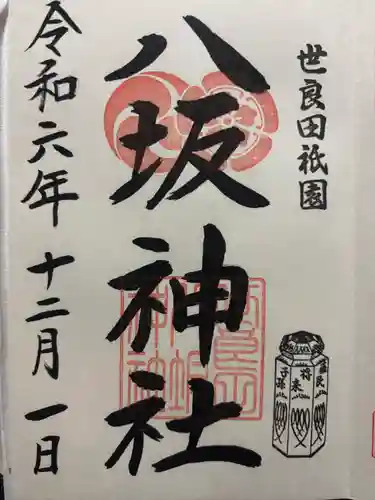 世良田祇園
八坂神社
令和六年十二月一日
蘇民
将来
子孫